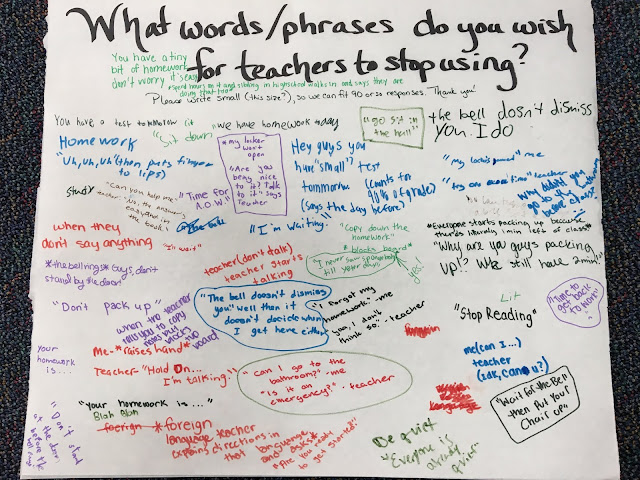 What words/phrases do you wish
for teachers to stop using?
You have a tiny
bit of homework
don't worry it's easy
Please write small (this size?), so we can fit 90 or so responses. Thank you!
You have a test tomorrow
"Sit down"
"we have homework today
"go sit in
the hall"
the bell dosn't dismiss
you. I do
Homework
"Uh, uh, uh" then puts finger
to lips)
*my locker
wont
open
"Are you
being nice
to it? Talk
to it" says
teacher
Hey guys you
have "small" test
tommorrow
(counts for
90% of grade)
(says the day before)
"my lock jammed" me
why didn't you
go to the bathroom
before class?
study
"Can you help me
"Time for
A.O.W."
"I'm waiting."
"Copy down the
homework"
*blacks board*
"I never saw
till your days
yes!
*Everyone starts packing up because
there's literally 1 min left of class*
"Why are you guys packing
UP!? We still have 1 min!"
when they
don't say anything
"I'll wait"
*the bell rings* "Guys, don't
stand by the door"
teacher (don't talk)
teacher starts
talking
"Don't pack up"
when the teacher
tells you to copy
notes but
blocks the
board
"The bell doesn't dismiss
you" well then it
doesn't decide when
I get here either.
"I forgot my
homework"-me
"yea, I don't
think so."-teacher
Lit
"Stop Reading"
"Time to
get back
to work"
Your
homework
is...
Me-*raises hand*
Teacher-"Hold On...
I'm talking."
"Can I go to the
bathroom?" -me
"Is it an
emergency?" -teacher
me (can I...)
teacher
(idk, can u?)
"your homework is..."
Blah Blah
"Wait for the Bell
then Put Your
Chair up"
"Don't
stand
at the door
before the
bell rings"
*foreign
language teacher
explains directions in
that language
and asks*
"Are you ready
to get started"
Be quiet
"Everyone is
already
quiet"